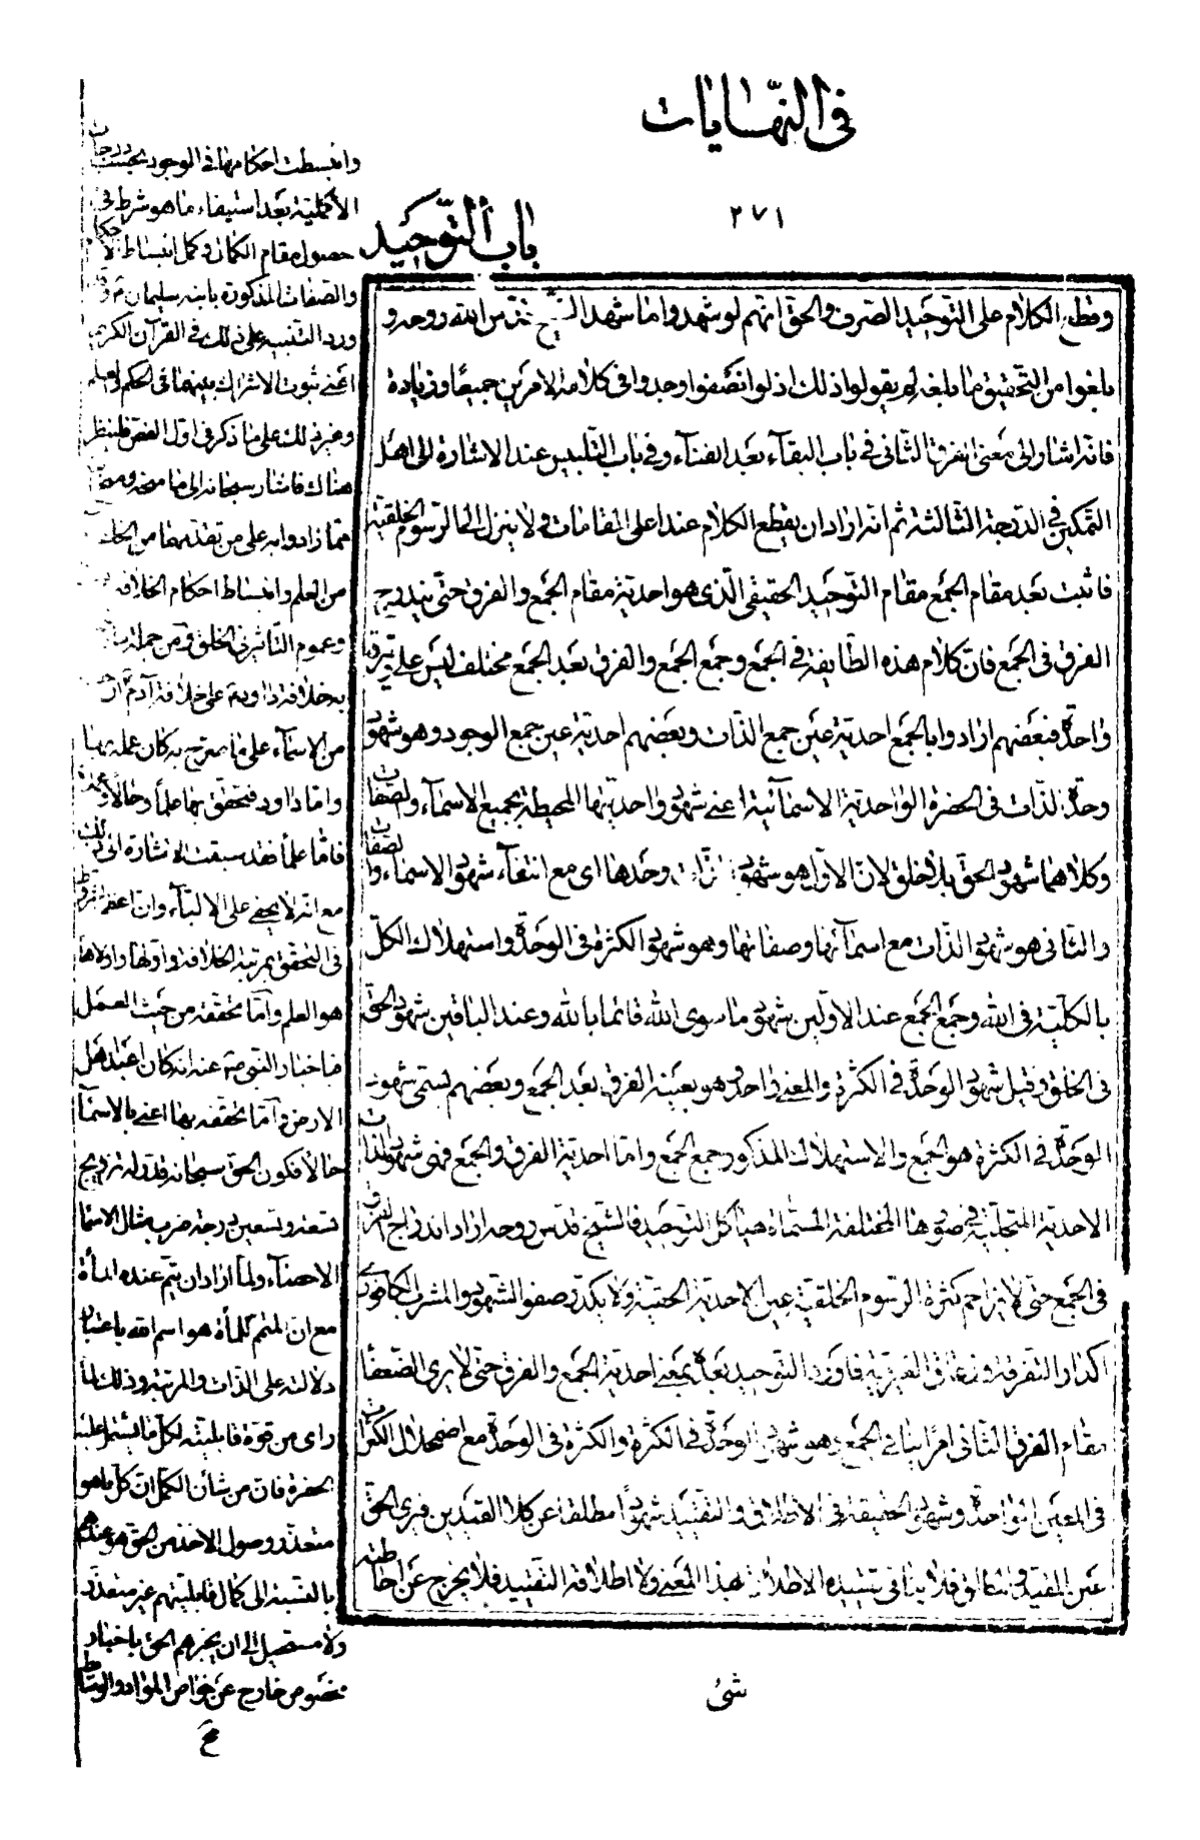 في النهايات
٢٧١
باب التوحيد
وقطع الكلام على التوحيد الصرف والحق انهم لو شهدوا ما شهد الشيخ قدس الله روحه و
بلغوا من التحقيق ما بلغه لم يقولوا ذلك اذ لو انصفوا وجدوا في كلامه الامرين جميعا وزيادة
فانه اشار الى معنى الفرق الثانى في باب البقاء بعد الفناء وفي باب التلبيس عند الاشارة الى اهل
التمكين في الدرجة الثالثة ثم انه اراد ان يقطع الكلام عند اعلى المقامات ولا ينزل الى الرسوم الخلقية
فاثبت بعد مقام الجمع مقام التوحيد الحقيقى الذى هو احدية مقام الجمع والفرق حتى يندرج
الفرق في الجمع فان كلام هذه الطايفة في الجمع وجمع الجمع والفرق بعد الجمع مختلف ليس على وتيرة
واحدة فبعضهم ارادوا بالجمع احدية عين جمع الذات وبعضهم احدية عين جمع الوجود وهو شهود
وحدة الذات في الحضرة الواحدية الاسمائية اعنى شهود واحديتها المحيطة بجميع الاسماء والصفات
وكلاهما شهود الحق بلا خلق لان الاول هو شهود الذات وحدها اى مع انتفاء شهود الاسماء والصفات
والثانى هو شهود الذات مع اسمائها وصفاتها وهو شهود الكثرة فى الوحدة واستهلاك الكل
بالكلية في الله وجمع الجمع عند الاولين شهود ما سوى الله قائما بالله وعند الباقين شهود الحق
فى الخلق وقيل شهود الوحدة في الكثرة والمعنى واحد وهو بعينه الفرق بعد الجمع وبعضهم يسمى شهود
الوحدة في الكثرة هو الجمع والاستهلاك المذكور جمع الجمع واما احدية الفرق والجمع فهى شهود الذات
الاحدية المتجلية في صورها المختلفة المسماة هياكل التوحيد فالشيخ قدس روحه اراد اندراج الفرق
فى الجمع حتى لا يزاحم كثرة الرسوم الخلقية عين الاحدية الحقية ولا يكدر صفو الشهود والمشرب الكافورى
اكدار التفرقة وزعاق الغيرية فاورد التوحيد بعده بمعنى احدية الجمع والفرق حتى لا يرى الضعفا
بقاء الفرق الثانى امرا ينافي الجمع وهو شهود الوحدة في الكثرة والكثرة فى الوحدة مع اضمحلال الكثرات
فى العين الواحدة وشهود الحقيقة فى الاطلاق والتقييد شهودا مطلقا عن كلا القيدين فيرى الحق
عين المقيد والمطلق فلا ينافى تقييده الاطلاق بهذا المعنى ولا اطلاقه التقييد فلا يخرج عن احاطته
شئ
وانبسطت احكامها في الوجود بحسب درجات
الأكملية بعد استيفاء ما هو شرط في
حصول مقام الكمال وكمل انبساط الاحكام
والصفات المذكورة بابنه سليمان ع وقد
ورد التنبيه على ذلك في القرآن الكريم
اعنى ثبوت الاشتراك بينهما فى الحكم والعلم
وغير ذلك على ما ذكر فى اول الفص فلينظر
هناك فاشار سبحانه الى ما منحه
مما زادوا به على من تقدمهما من
من العلم وانبساط احكام الخلافة
وعموم التاثير في الخلق ومن جملة
به خلافة داود ع على خلافة آدم ان
من الاسماء على ما صرح به كان علمه بها
واما داود فتحقق بها علما وحالا وعملا
فاما علما فقد سبقت الاشارة الى ذلك
مع انه لا يخفى على الالباء وان اعظم شروط
فى التحقق بمرتبة الخلافة واولها واولاها
هو العلم واما تحققه من حيث العمل
فباخبار النبى ص عنه انه كان اعبد اهل
الارض واما تحققه بها اعنى بالاسماء
حالا فكون الحق سبحانه قدر له تزويج
تسعة وتسعين زوجة ضرب مثال الاسماء
الاحصاء ولما اراد ان يتم عنده المأة
مع ان المتمم للمأة هو اسم الله باعتبار
دلالته على الذات والمرتبة وذلك لما
راى من قوة قابليته لكل ما يشتمل عليه
الحضرة فان من شأن الكمل ان كل ما هو
متعذر وصول الاخذ من الحق هو عندهم
بالنسبة الى كمال قابليتهم غير متعذر
ولا مستحيل الى ان يخبرهم الحق باخبار
مخصوص خارج عن خواص المواد والوسائط